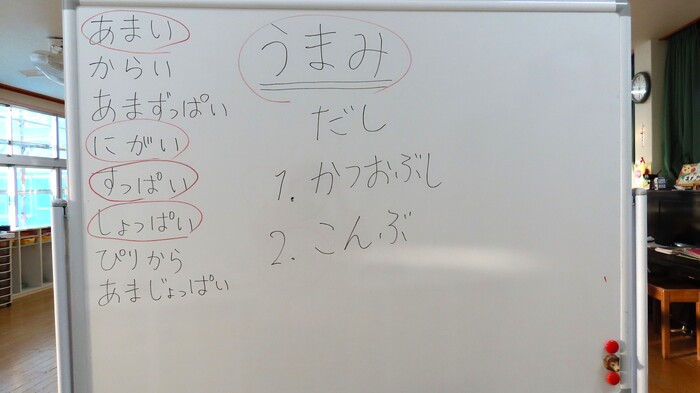 あまい
からい
あまずっぱい
にがい
すっぱい
しょっぱい
ぴりから
あまじょっぱい
うまみ
だし
1. かつおぶし
2. こんぶ